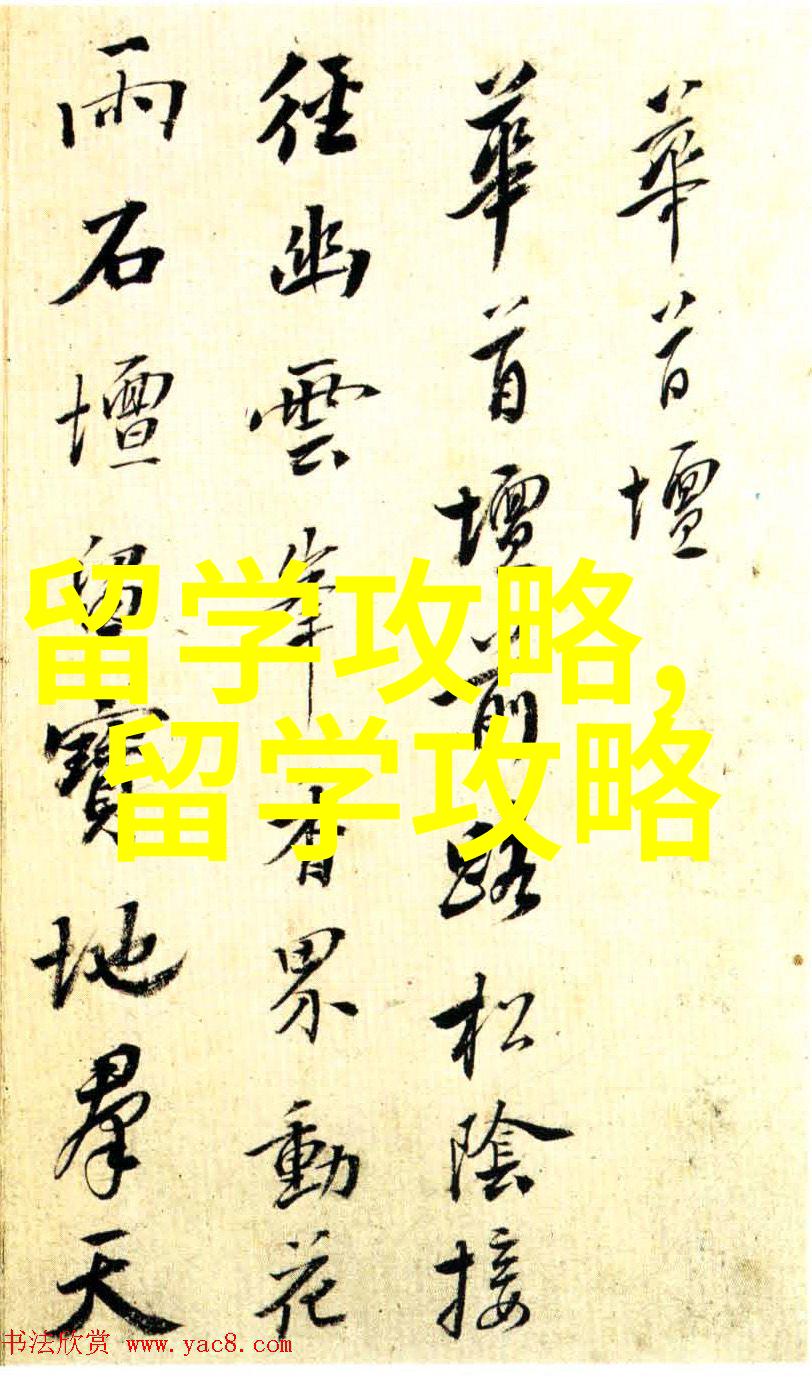 華首壇
華首壇前路松陰接
徑幽雲峯香界動花
雨石壇留寶地羣天
留学攻略,
留学攻略
书法欣赏 www.yac8.com